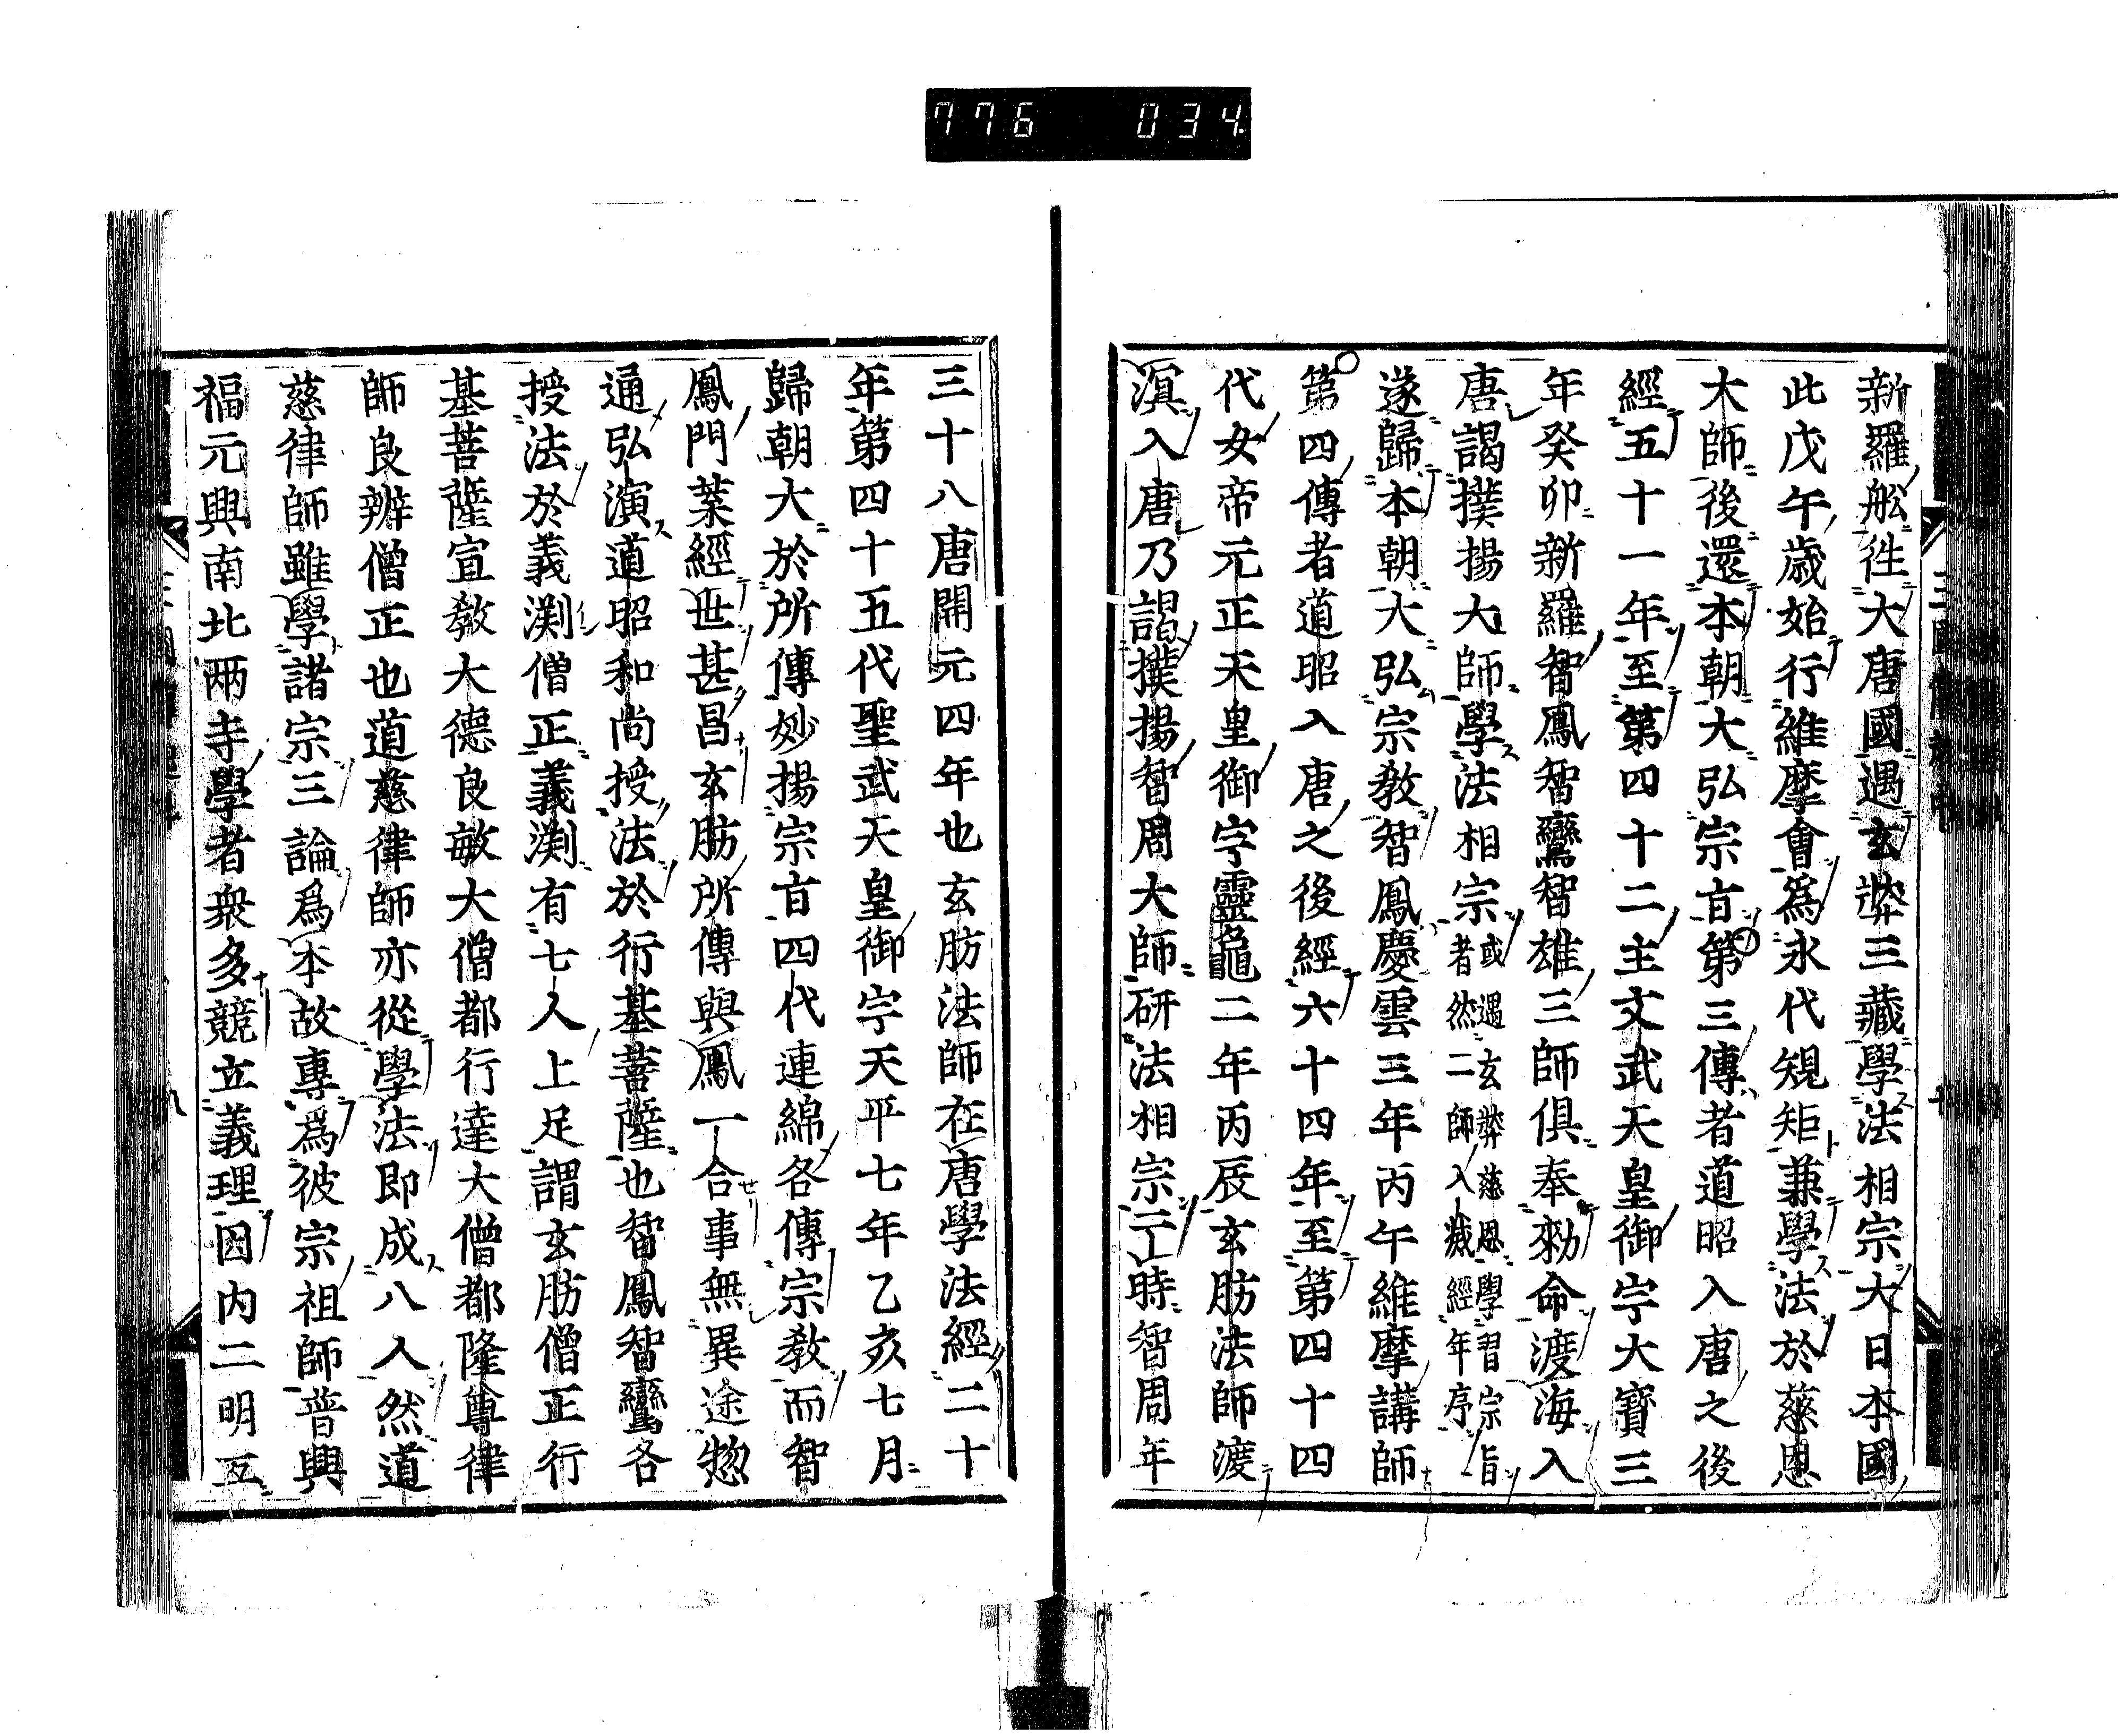 776 034
新羅舩徃大唐國遇玄弉三藏學法相宗大日本國
此戊午歳始行維摩會爲永代䂓矩兼學法於慈恩
大師後還本朝大弘宗㫖第三傳者道昭入唐之後
經五十一年至第四十二主文武天皇御宇大寳三
年癸卯新羅智鳳智鸞智雄三師倶奉勅命渡海入
唐謁撲揚大師學法相宗或遇玄弉慈恩學習宗旨者然二師入滅經年序
遂歸本朝大弘宗教智鳳慶雲三年丙午維摩講師
第四傳者道昭入唐之後經六十四年至第四十四
代女帝元正天皇御宇靈龜二年丙辰玄肪法師渡
滇入唐乃謁撲揚智周大師研法相宗于時智周年
三十八唐開元四年也玄肪法師在唐學法經二十
年第四十五代聖武天皇御宇天平七年乙亥七月
歸朝大於所傳妙揚宗㫖四代連綿各傳宗教而智
鳳門葉經世甚昌玄肪所傳與鳳一合事無異途惣
通弘演道昭和尚授法於行基菩薩也智鳳智鸞各
授法於義渕僧正義渕有七人上足謂玄肪僧正行
基菩薩宣教大德良敏大僧都行達大僧都隆尊律
師良辨僧正也道慈律師亦從學法即成八人然道
慈律師雖學諸宗三論爲本故專爲彼宗祖師普興
福元興南北兩寺學者衆多競立義理因内二明互